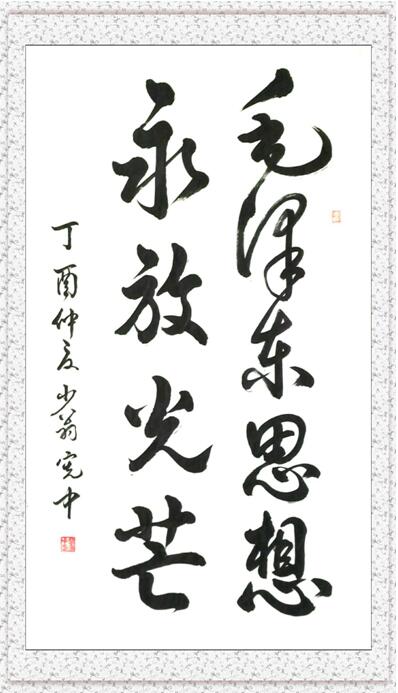 毛泽东思想
永放光芒
丁酉仲夏少翁宪中